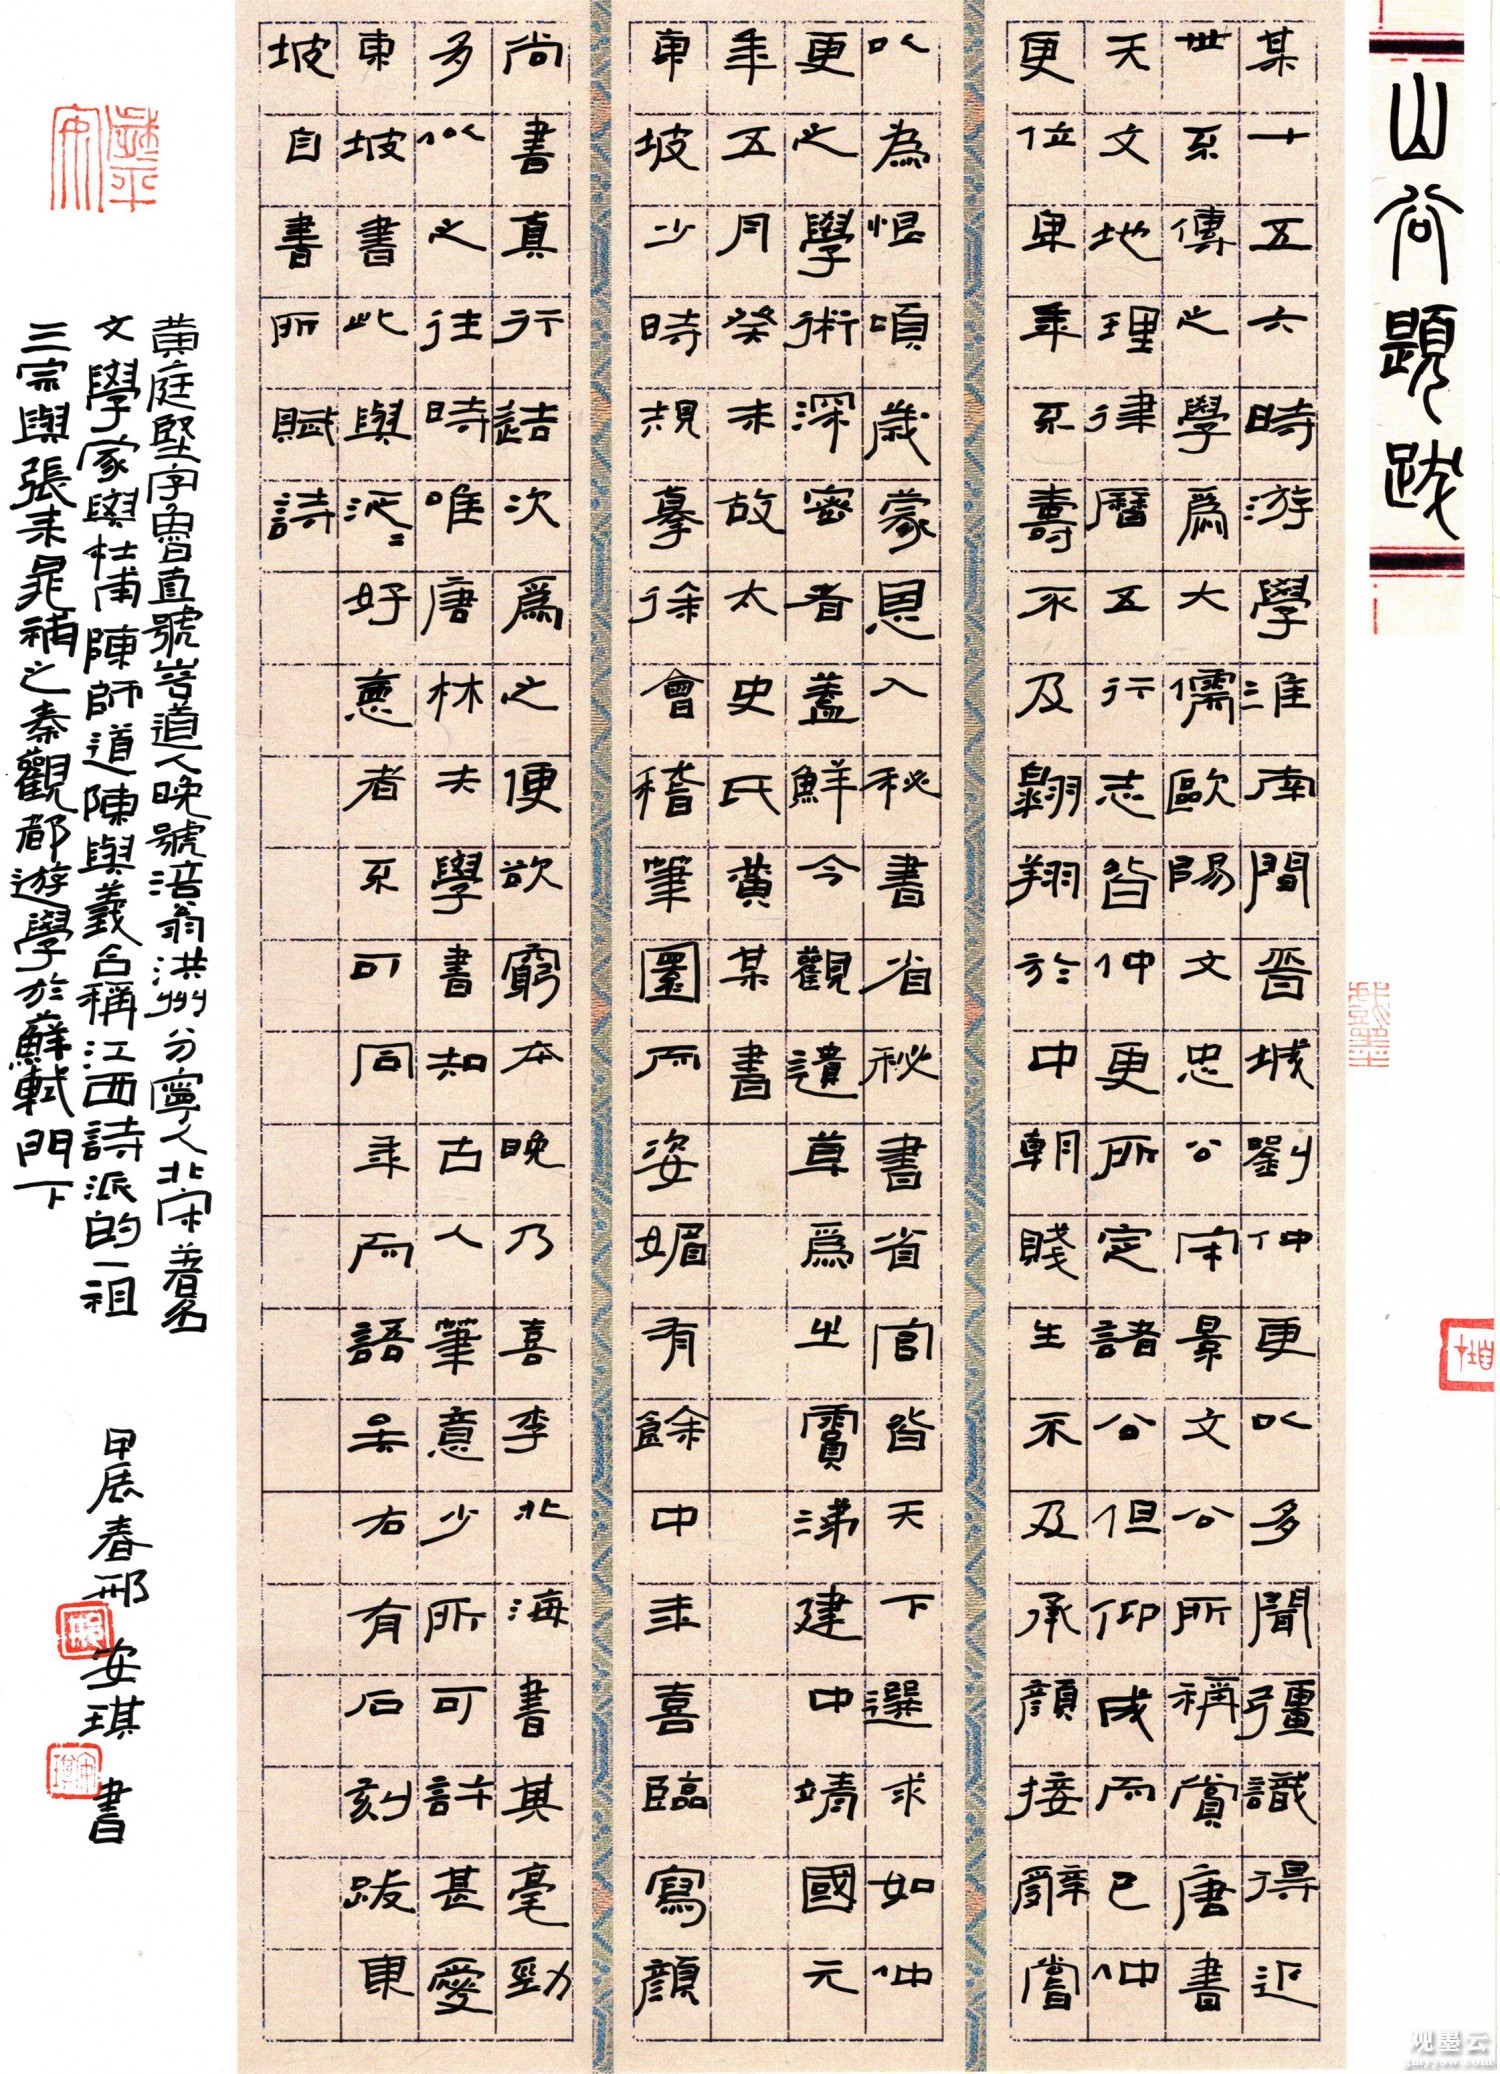 山谷題跋
某十五六時游學淮南間晉城劉仲更以多聞彊識得近
世不傳之學爲大儒歐陽文忠公宋景文公所稱賞唐書
天文地理律曆五行志皆仲更所定諸公但仰成而已仲
更位卑年不壽不及翱翔於中朝賤生不及承顏接辭嘗
以為恨頃歲蒙恩入秘書省秘書省官皆天下選求如仲
更之學術深密者蓋鮮今觀遺草爲之霣涕建中靖國元
年五月癸未故太史氏黃某書
東坡少時規摹徐會稽筆圜而姿媚有餘中年喜臨寫顏
尚書真行造次爲之便欲窮本晚乃喜李北海書其毫勁
多似之往時唯唐林夫學書知古人筆意少所可許甚愛
東坡書此與泛〻好惡者不可同年而語矣右有石刻跋東
坡自書所賦詩
黃庭堅字魯直號山谷道人晚號涪翁洪州分寧人北宋著名
文學家與杜甫陳師道陳與義合稱江西詩派的一祖
三宗與張耒晁補之秦觀都遊學於蘇軾門下
甲辰春邢安琪書
观墨云